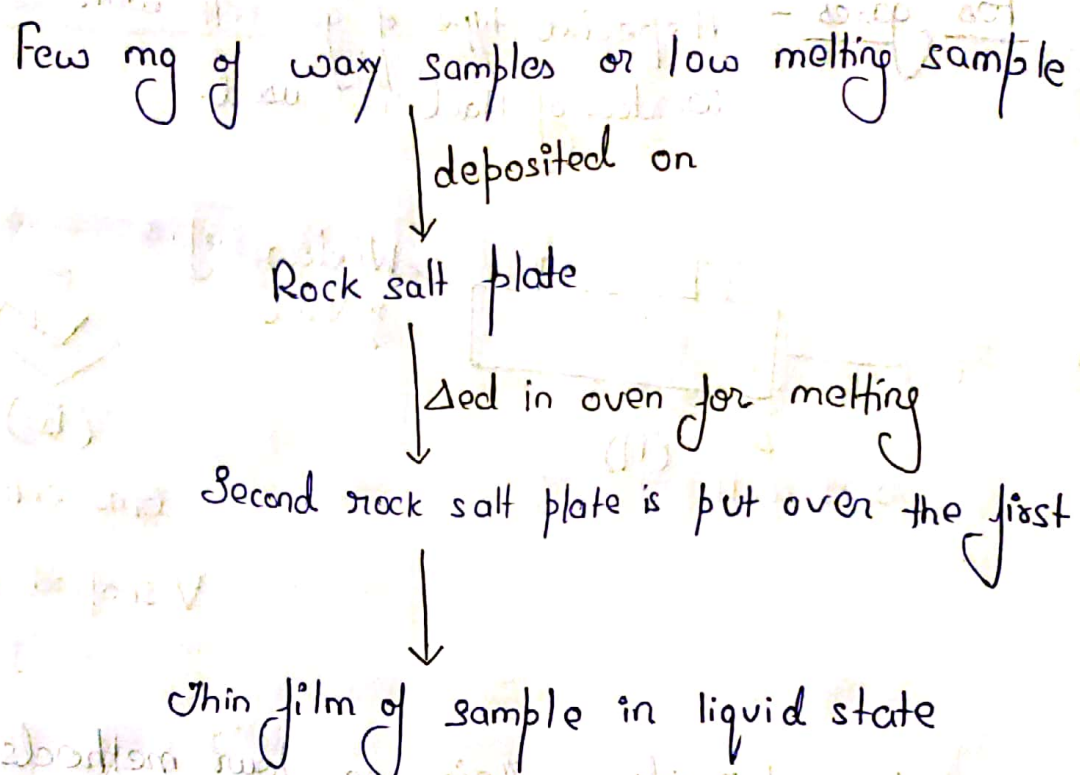 Few mg of waxy samples or low melting sample
deposited on
Rock salt plate
Δed in oven for melting
Second rock salt plate is put over the first
Thin film of sample in liquid state